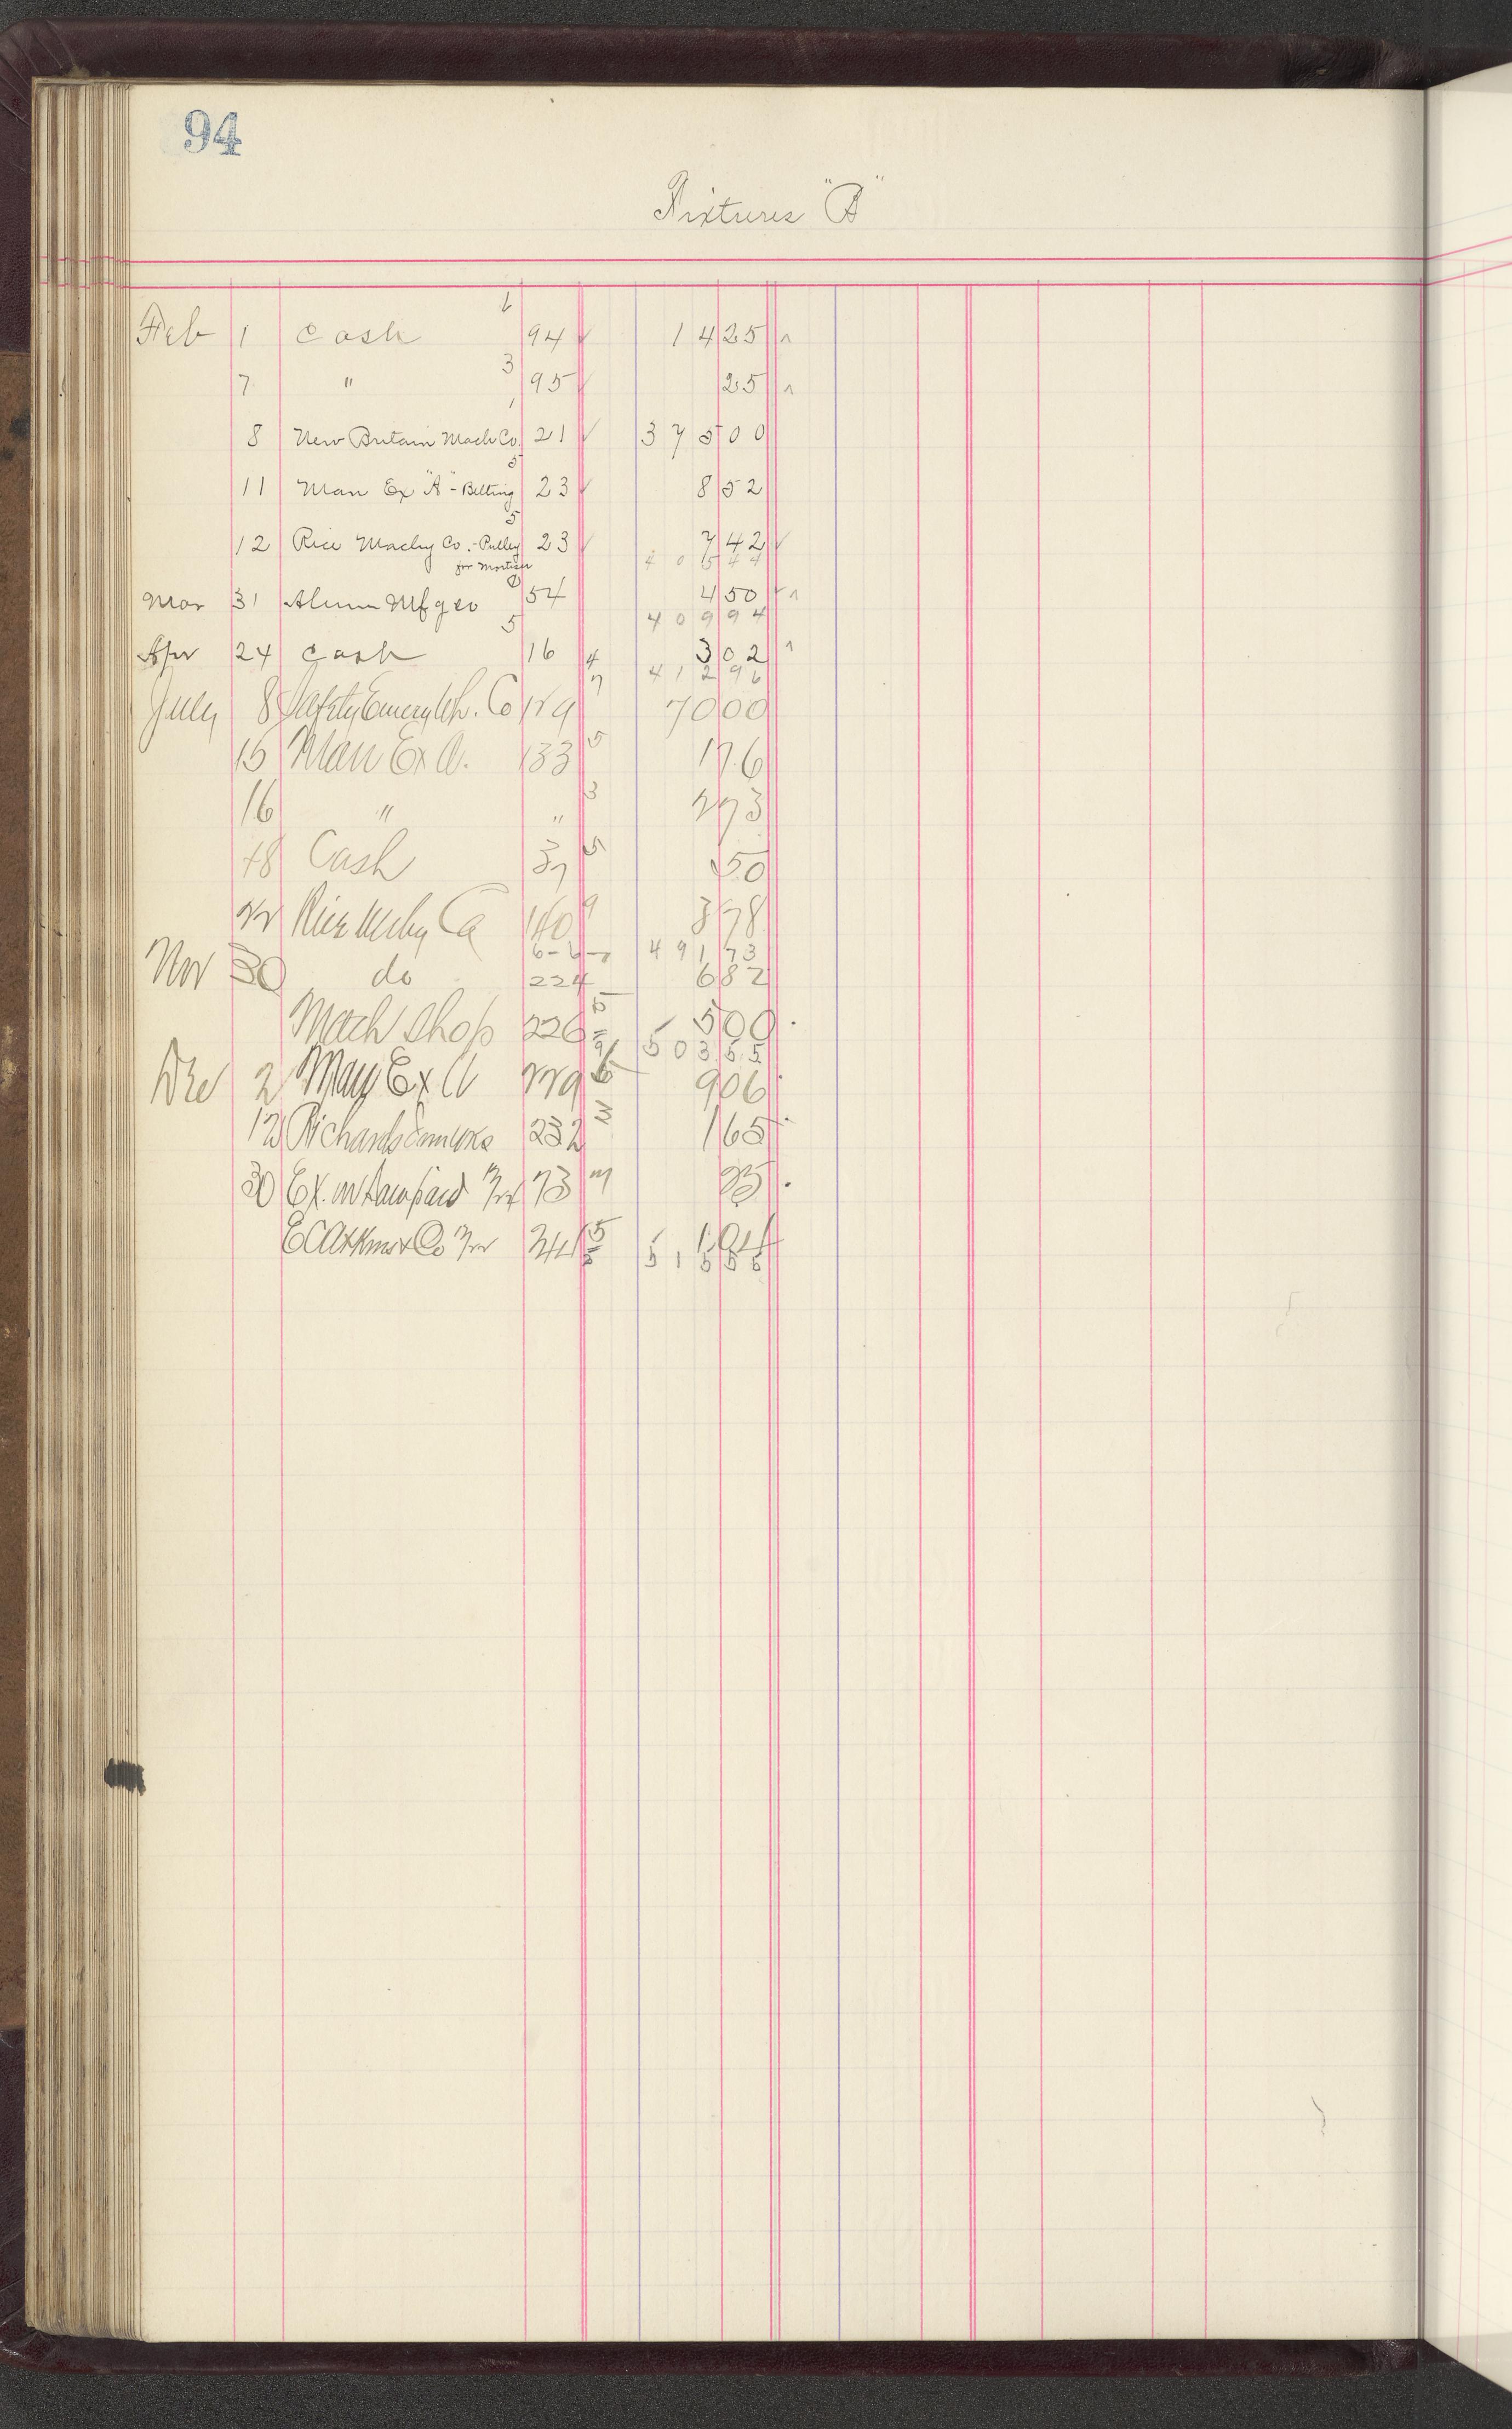 94
Fixtures "A"
6
Feb 1 Cash 94 √ 14 25
3
7 " 95 √ 25
1
8 New Britain Mach Co. 21 √ 375 00
5
11 Man Ex "A" - Belting 23 √ 8 52
5
12 Rice Machy Co. - Pulley 23 √ 7 42 √
for Mortiser 405 44
Mar 31 Alum Mfg Co 54 4 50
5 409 94
Apr 24 Cash 16 4 3 02
7 412 96
July 8 Safety Emery Wh. Co 129 70 00
15 Man Ex A. 133 5 1 76
16 " " 3 2 73
18 Cash 37 5 50
22 Rice Mchy Co 140 9 3 78
6-6-7 491 73
Nov 30 do 224 6 82
Mach Shop 226 5 5 00
503 55
Dec 2 Man Ex A 229 6 9 06
12 Richards 232 3 1 65
30 Ex. 73 3 25
E C Atkins & Co 241 5 1 04
515 55